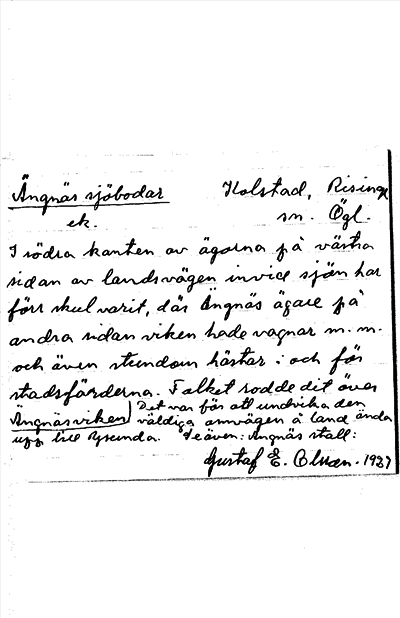 Ängnäs sjöbodar Kolstad, Risinge
ek. sn. Ögl.
I södra kanten av ägorna på västra
sidan av landsvägen invid sjön har
förr skul varit, där Ängnäs ägare på
andra sidan viken hade vagnar m. m.
och även stundom hästar i och för
stadsfärderna. Folket rodde dit över
Ängnäsviken) Det var för att undvika den
väldiga omvägen å land ända
upp till Ysunda. Se även: Ängnäs stall:
Gustaf E. Olsson. 1937